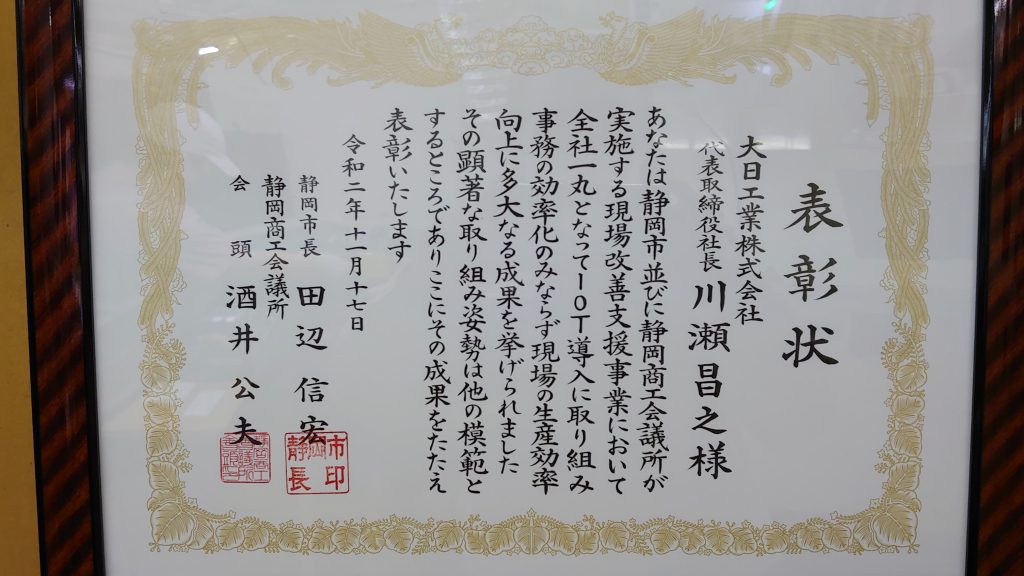 表彰状
大日工業株式会社
代表取締役社長 川瀬昌之様
あなたは静岡市並びに静岡商工会議所が
実施する現場改善支援事業において
全社一丸となってIOT導入に取り組み
事務の効率化のみならず現場の生産効率
向上に多大なる成果を挙げられました
その顕著な取り組み姿勢は他の模範と
するところでありここにその成果をたたえ
表彰いたします
令和二年十一月十七日
静岡市長 田辺信宏
静岡商工会議所
会頭 酒井公夫
静岡市長印